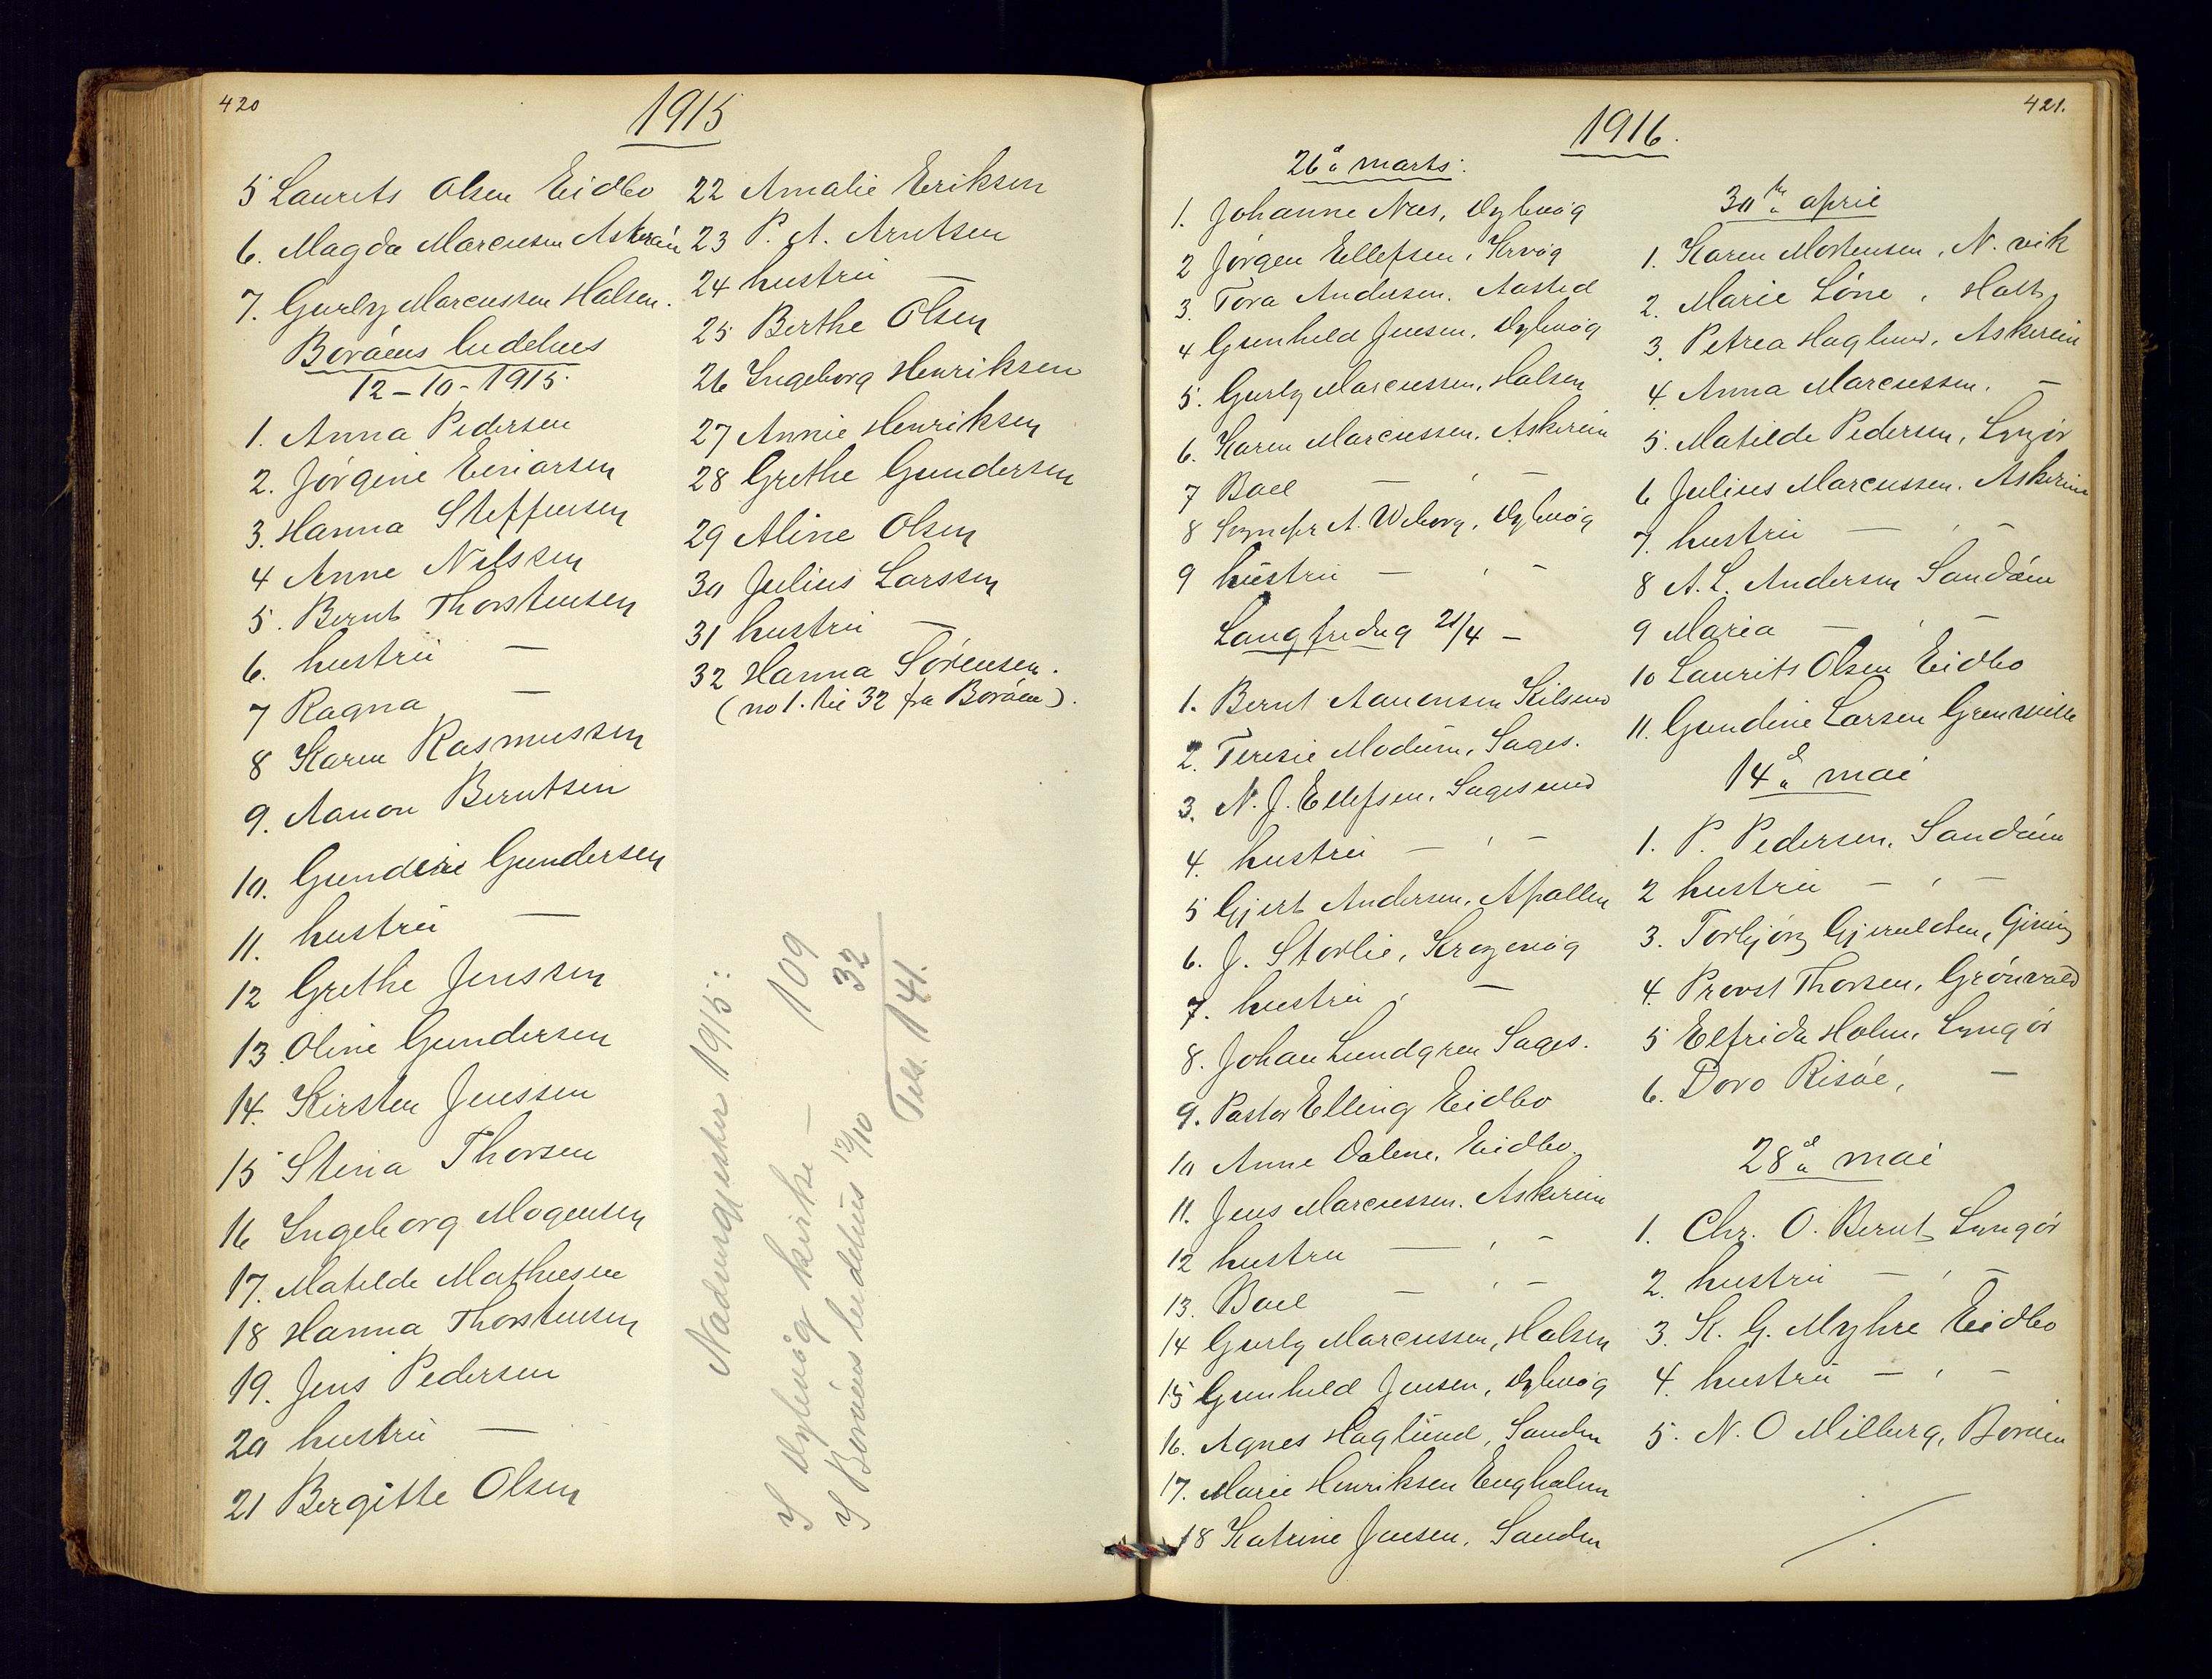 420
1915
5 Laurits Olsen Eidbo
6. Magda Marcussen Askeröen
7. Gurly Marcussen Halsen.
Boröens bedehus
12-10-1915.
1. Anna Pedersen
2. Jörgine Einarsen
3. Hanna Steffensen
4 Anne Nilssen
5. Bernt Thorstensen
6. hustru —
7 Ragna —
8 Karen Rasmussen
9. Aanon Berntsen
10. Gundine Gundersen
11. hustru —
12 Grethe Jenssen
13. Oline Gundersen
14. Kirsten Jenssen
15 Stina Thorsen
16 Ingeborg Mogensen
17. Matilde Mathiesen
18 Hanna Thorstensen
19. Jens Pedersen
20 hustru —
21 Bergitte Olsen
22 Amalie Eriksen
23 P. A. Arntsen
24 hustru —
25 Berthe Olsen
26 Ingeborg Henriksen
27 Annie Henriksen
28 Grethe Gundersen
29 Aline Olsen
30 Julius Larssen
31 hustru —
32 Hanna Sörensen.
(no 1. til 32 fra Boröen).
Nadverqjester 1915:
I Dybvög kirke — 109
I Boröens bedehus 12/10 32
Tils. 141.
421.
1916.
26de marts:
1. Johanne Næs, Dybvög
2 Jörgen Ellefsen, Krvög
3. Tora Andersen. Aasted
4 Gunhild Jensen, Dybvög
5. Gurly Marcussen, Halsen
6. Karen Marcussen, Askeröen
7 Boel — , —
8 Sognepr A. Weborg, Dybvög
9 hustru — , —
Langfredag 21/4 —
1. Bernt Aanonsen Kilsund
2. Teresie Modum, Sages.
3. N. J. Ellefsen, Sagesund
4. hustru — , —
5 Gjert Andersen, Apallen
6. J. Storlie, Krogevög
7. hustru , —
8. Johan Lundgren Sages.
9. Pastor Elling Eidbo
10 Anne Dalene, Eidbo.
11. Jens Marcussen. Askeröen
12 hustru — , —
13. Boel — , —
14 Gurly Marcussen, Halsen
15 Gunhild Jensen, Dybvög
16. Agnes Haglund, Sanden
17. Marie Henriksen Engholm
18 Katrine Jensen, Sanden
30te april
1. Karen Mortensen, N. vik
2. Marie Löne, Holt
3. Petrea Haglund, Askeröen
4. Anna Marcussen. —
5. Matilde Pedersen, Lyngör
6 Julius Marcussen. Askeröen
7. hustru — , —
8 A. L. Andersen Sandöen
9 Maria — , —
10 Laurits Olsen Eidbo
11. Gundine Larsen
14de mai
1. P. Pedersen, Sandöen
2 hustru — , —
3. Torbjörg Gjeruldsen, Giving
4. Provst Thorsen, Grönvold
5 Elfrida Holm, Lyngör
6. Doro Risöe, —
28de mai
1. Chr. O. Bernt, Lyngör
2. hustru — , —
3. K. G. Myhre Eidbo
4. hustru — , —
5. N. O Milberg, Boröen